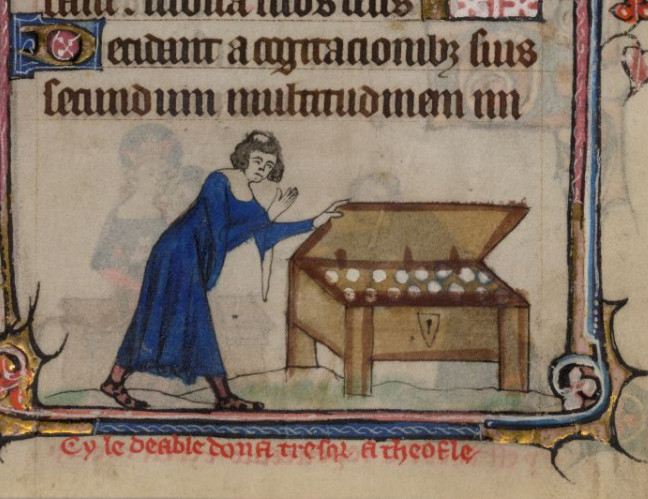 iudica illos deus
Decidant a cogitacionibꝫ suis
secundum multitudinem im
Cy le deable dona tresor a theofle